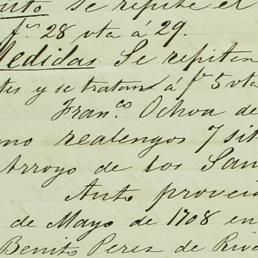 nto se repite el
fs. 28 vta á 29.
Medidas Se repiten
tes y se tratan á fs 5 vta
Franco. Ochoa de
mo realengos 7 siti
Arroyo de los San
Auto provei
de Mayo de 1708 en
Benito Perez de Rive